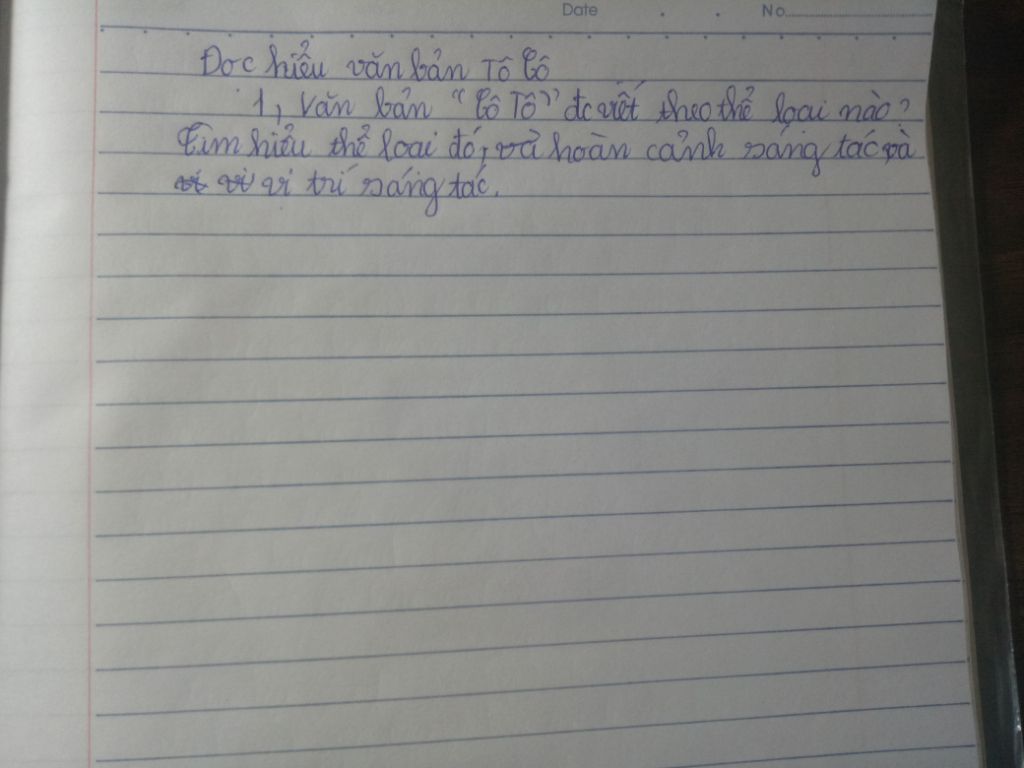 Date . . No
Đọc hiểu văn bản Tô Cô
1, Văn bản "Cô Tô" đc viết theo thể loại nào?
Tìm hiểu thể loại đó, và hoàn cảnh sáng tác và
vị trí sáng tác.